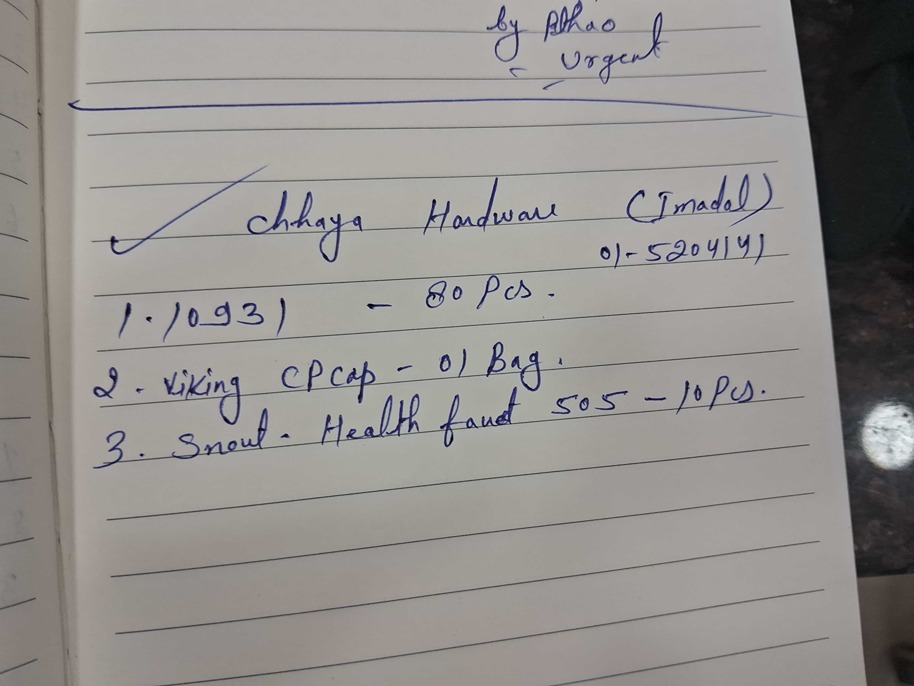 by
Urgent
Chhaya Hardware (Imadol)
01-5204141
1. 10931 - 80 Pcs.
2. Viking CP Cap - 01 Bag.
3. Snout - Health faucet 505 - 10 Pcs.